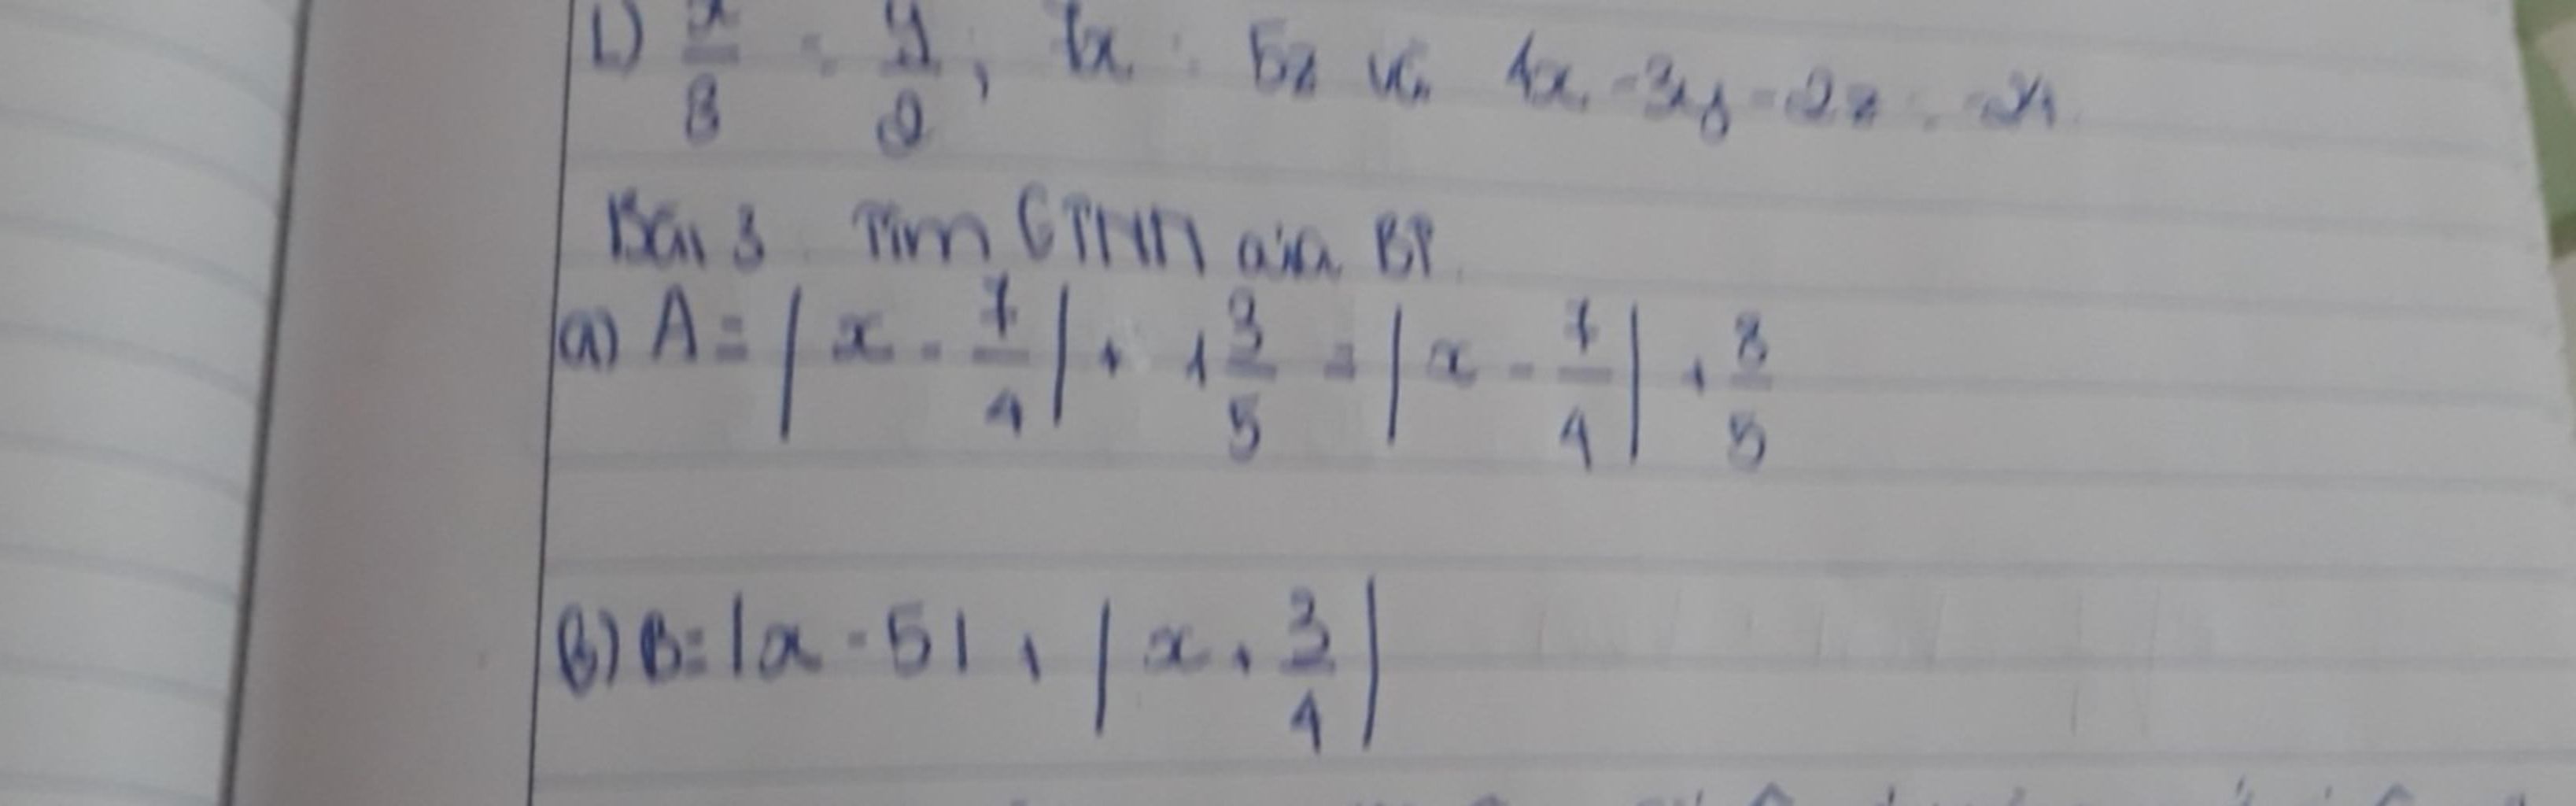 L) x/8 = y/9, 7x = 5z và 4x - 3y - 2z = -24
Bài 3. Tìm GTNN của BT
a) A = | x - 7/4 | + 1 3/5 = | x - 7/4 | + 8/5
b) B = |x - 5| + | x + 3/4 |